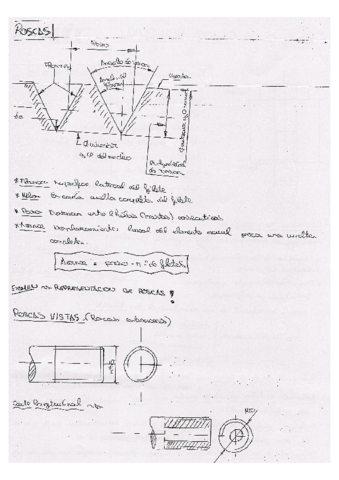 ROSCAS
Paso
Ángulo de rosca
Flancos
Cresta
Diámetro
del núcleo
Profundidad
de rosca
* Flanco: superficie lateral del filete
* Hélice: Es cada vuelta completa del filete.
* Paso: Distancia entre 2 hélices (crestas) consecutivas
* Avance: Desplazamiento lineal del elemento roscado por una vuelta
completa.
Avance = paso · nº de filetes
REPRESENTACIÓN DE ROSCAS
ROSCAS VISTAS (Roscas exteriores)
Corte longitudinal